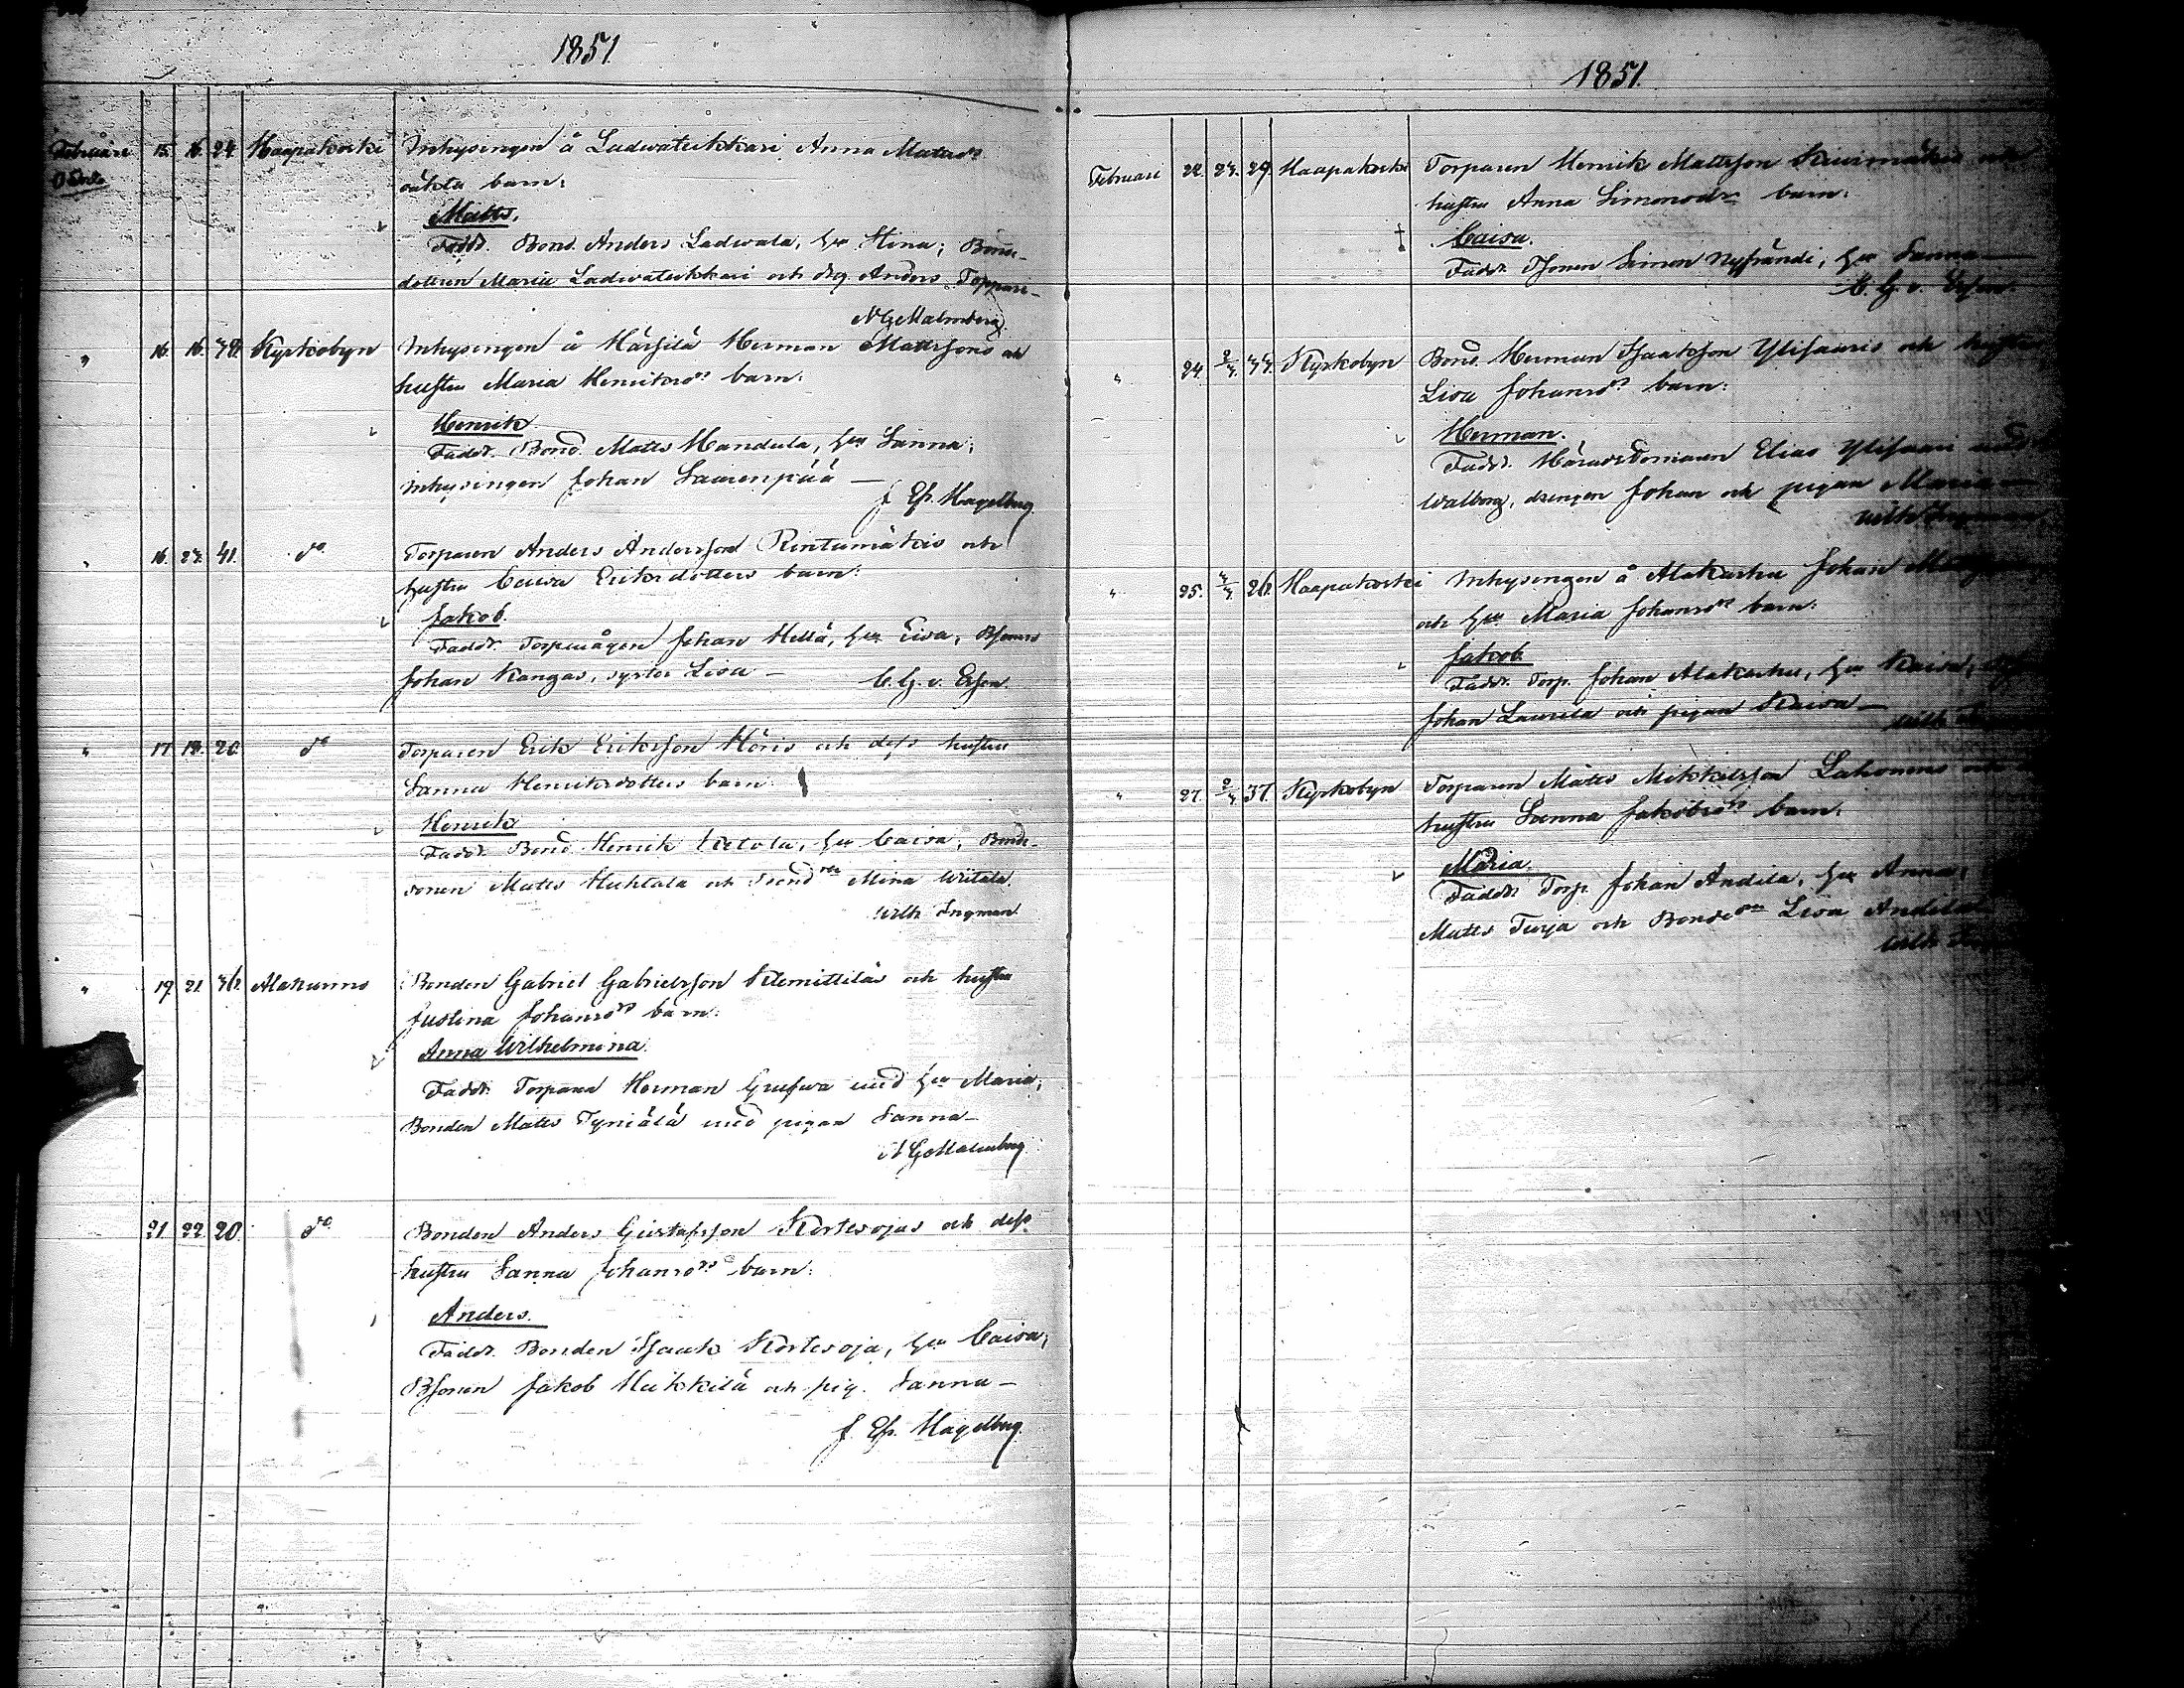 1851
Februari 15. 16. 24 Haapakoski Inhysingen å Ladwateikkari Anna Matsdr
oäkta barn:
Matts.
Faddr. Bond. Anders Ladwala, hu Stina; Bonde-
dottren Maria Ladwateikkari och drg Anders Toppari-
N G Malmberg.
" 16. 16. 38. Kyrkobyn Inhysingen å Härsilä Herman Mattssons och
hustru Maria Henriksdrs barn:
Henrik
Faddr. Bond. Matts Mandula, hu Sanna;
inhysingen Johan Saarenpää —
J Ep. Hagelberg.
" 16. 23. 41. do Torparen Anders Andersson Rintamäkis och
hustru Caisa Eriksdotters barn:
Jakob.
Faddr. Torpmågen Johan Hellä, hu Lisa; Bsonen
Johan Kangas, syster Lisa — C. G. v. Essen.
" 17. 19. 20 do Torparen Erik Eriksson Höris och dess hustru
Sanna Henriksdotters barn:
Henrik
Faddr. Bond Henrik Uitola, hu Caisa; Bonde-
sonen Matts Huhtala och Mina Witala.
Wilh Ingman
" 19. 21. 36. Alakurino Bonden Gabriel Gabrielsson Klemittiläs och hustru
Justina Johansdrs barn:
Anna Wilhelmina.
Faddr. Torparen Herman med hu Maria;
Bonden Matts Tyniälä med pigan Sanna —
N G Malmberg
21. 22. 20. do Bonden Anders Gustafsson Kortesojas och dess
hustru Sanna Johansdrs barn:
Anders.
Faddr. Bonden Isaak Kortesoja, hu Caisa;
Bsonen Jakob Hukkilä och pig. Sanna —
J. Ep. Hagelberg.
1851.
Februari 22. 23. 29. Haapakoski Torparen Henrik Mattsson och
hustru Anna Simonsdrs barn:
† Caisa.
Faddr. Bsonen Simon Nyfrändi, hu Sanna —
C. G. v. Essen.
" 24. 2/3. 33. Kyrkobyn Bond. Herman Isaksson Ylisauris och hustru
Lisa Johansdrs barn:
Herman.
Faddr. Häradsdomaren Elias Ylisaari med
Walborg, drengen Johan och pigan Maria —
Wilh. Ingman
" 25. 3/3. 26. Haapakoski Inhysingen å Alakarhu Johan
och hu Maria Johansdrs barn:
Jakob
Faddr. Torp. Johan Alakarhu, hu Kaisa;
Johan Laurila och pigan Kaisa —
Wilh
" 27. 2/3. 37. Kyrkobyn Torparen Matts Mikkelsson Lahonens och
hustru Sanna Jakobsdrs barn:
Maria.
Faddr. Torp. Johan Andila, hu Anna,
Matts Turja och Bondedn Lisa Andila
Wilh